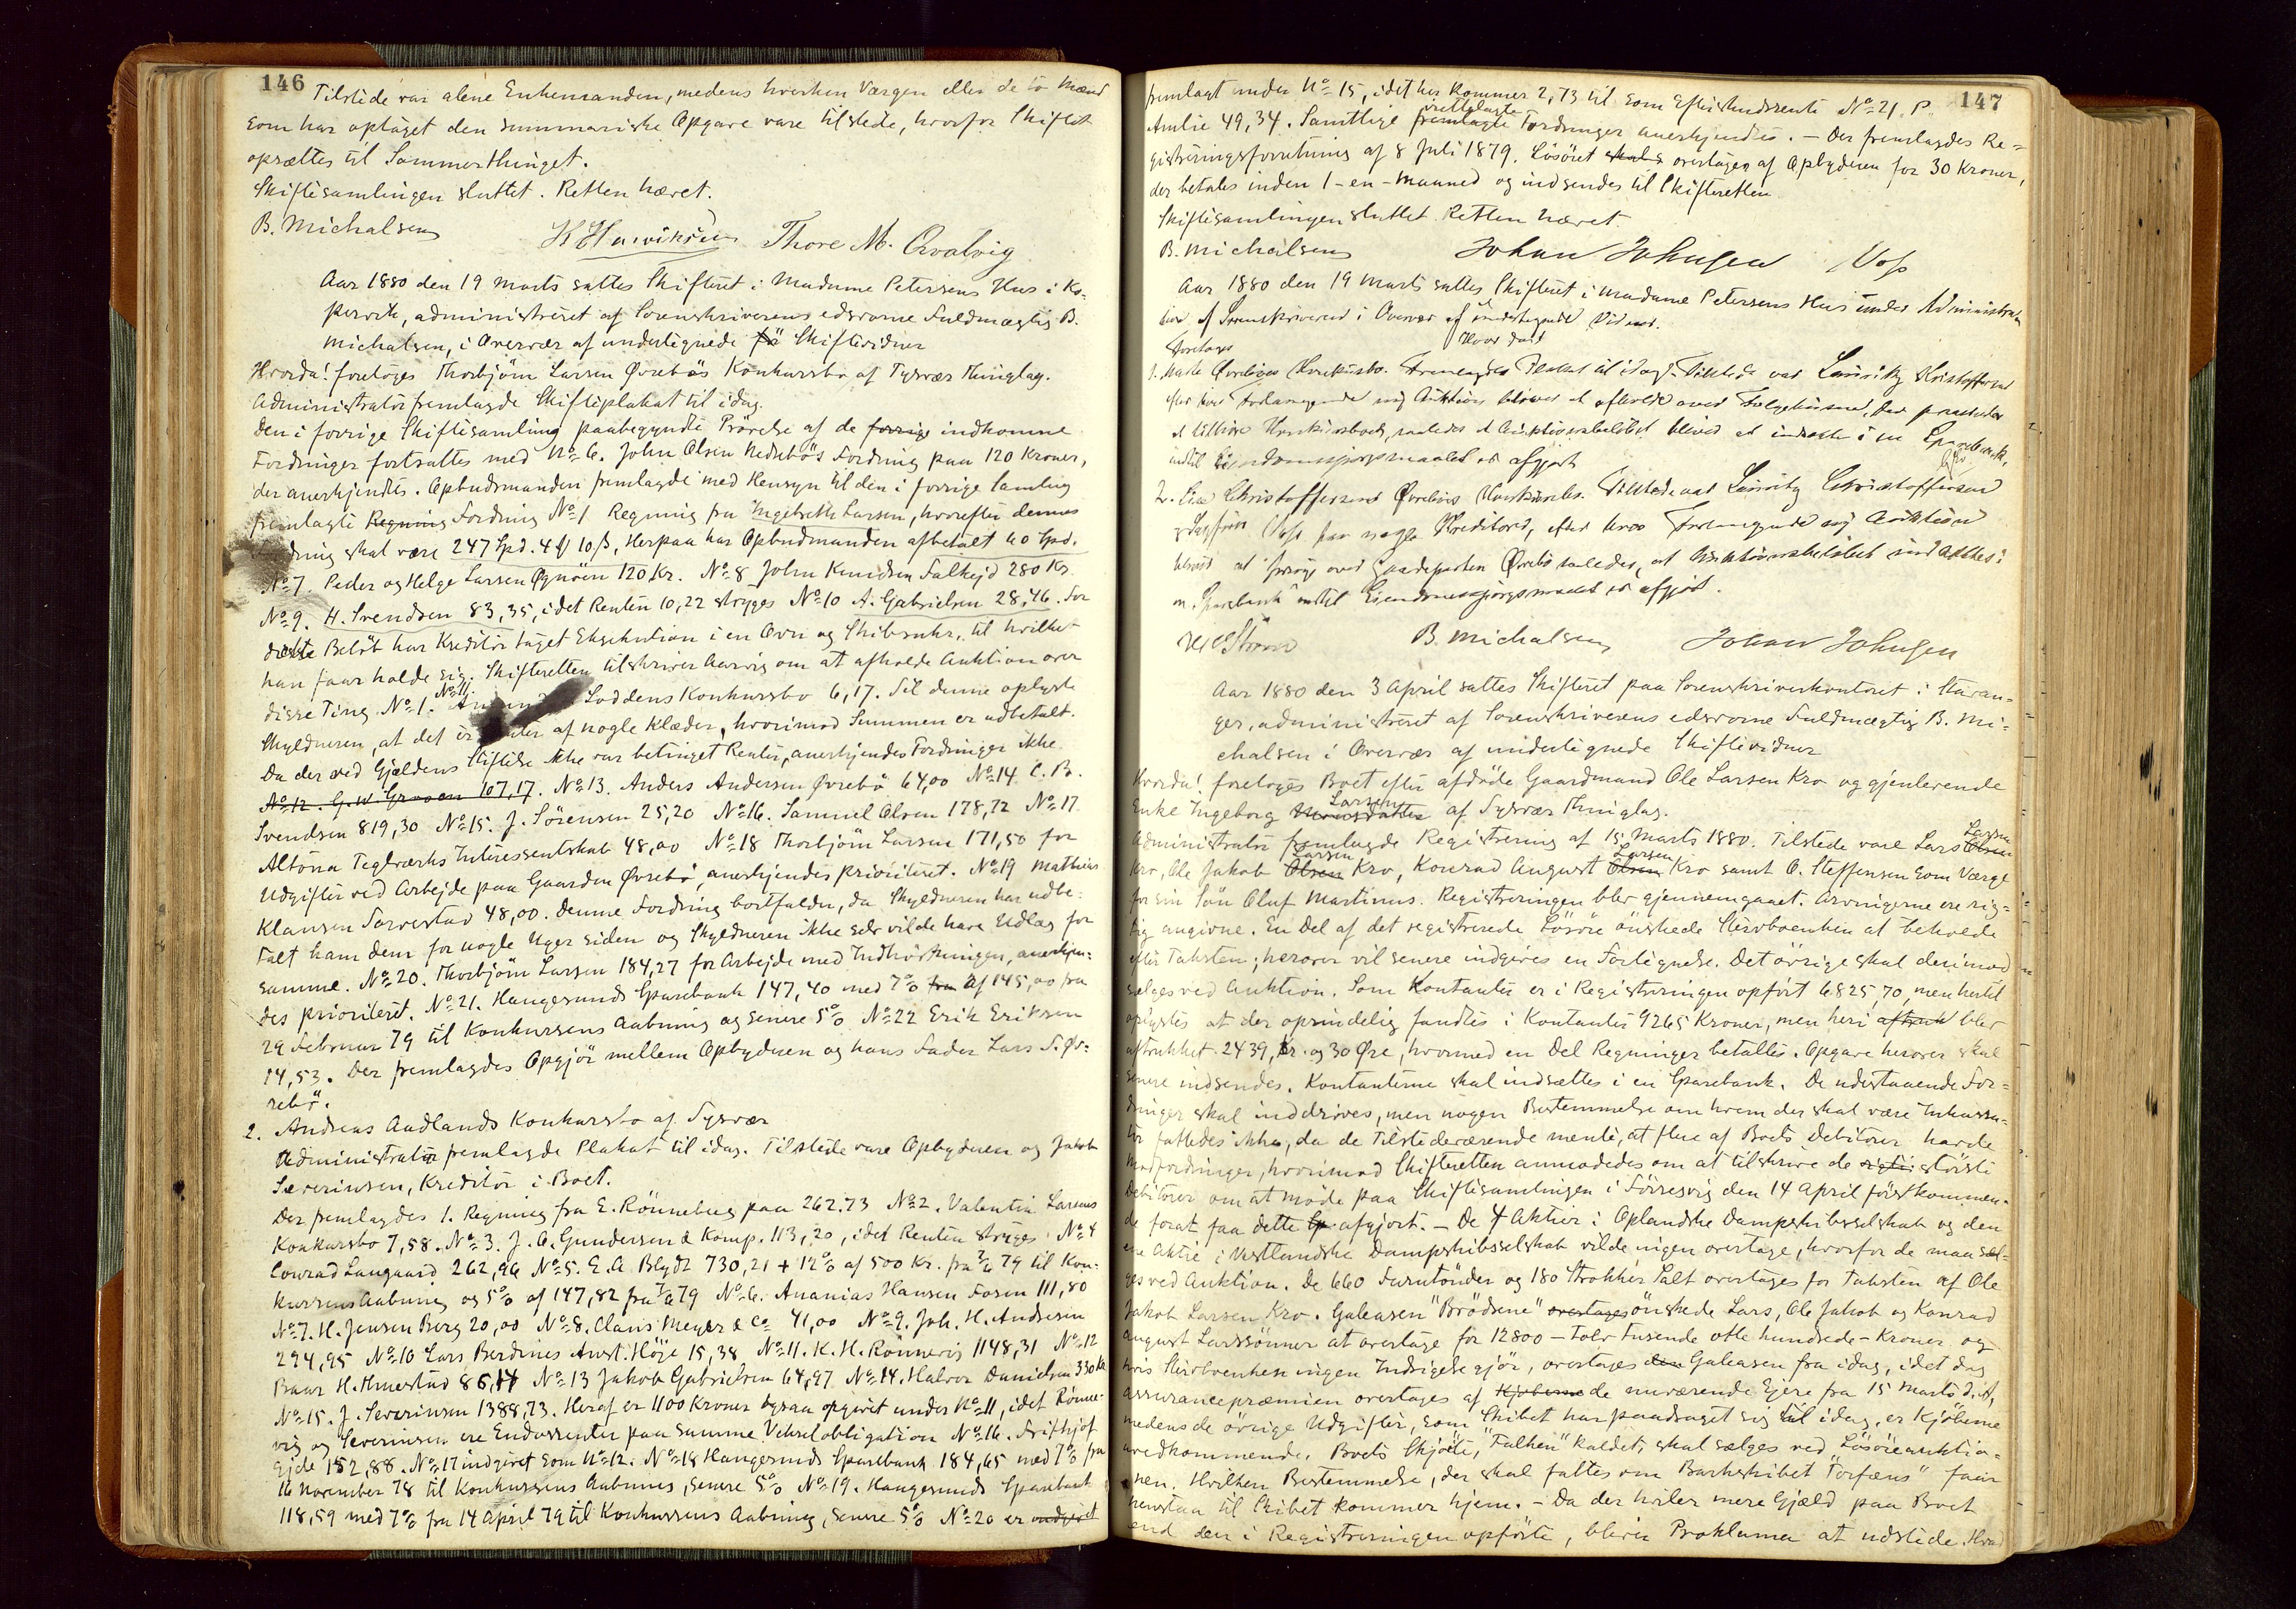 146
Tilstede var alene Enkemanden, medens hverken Værgen eller de to Mænd
som har optaget den summariske Opgave vare tilstede, hvorfor Skiftet
opsættes til Sommerthinget.
Skiftesamlingen sluttet. Retten hævet.
B. Michalsen H Henriksen Thore M. Qvalvig
Aar 1880 den 19 Marts sattes Skifteret i Madame Petersens Hus i Ko-
pervik, administreret af Sorenskriverens edsvorne Fuldmægtig B.
Michalsen, i Overvær af undertegnede to Skiftevidner
Hvorda! foretoges Thorbjörn Larsen Övrebös Konkursbo af Tysvær Thinglag.
Administrator fremlagde Skifteplakat til idag.
Den i forrige Skiftesamling paabegyndte Prövelse af de forrige indkomne
Fordringer fortsattes med No 6. John Olsen Nedrebös Fordring paa 120 Kroner,
der anerkjendtes. Opbudsmanden fremlagde med Hensyn til den i forrige Samling
fremlagte Regning Fordring No 1 Regning fra Ingebreth Larsen, hvorefter dennes
Fordring skal være 247 Spd. 4 # 10 ß, Herpaa har Opbudmanden afbetalt 40 Spd.
No 7. Peder og Helge Larsen Øgnöen 120 Kr. No 8 John Knudsen Falkejd 280 Kr.
No 9. H. Svendsen 83,35, idet Renten 10,22 stryges No 10 A. Gabrielsen 28,46. For
dette Belöb har Kreditor taget Eksekution i en Ovn og Skibsuhr, til hvilket
han faar holde sig. Skifteretten tilskriver Aarvig om at afholde Auktion over
disse Ting No 1. No 11. Loddens Konkursbo 6,17. Til denne oplyste
Skyldneren, at det er Renter af nogle Klæder, hvorimod Summen er udbetalt.
Da der ved Gjældens Stiftelse ikke var betinget Renter, anerkjendes Fordringen ikke.
No 12. G. W. Graven 107,17. No 13. Anders Andersen Övrebö 64,00 No 14. C. B.
Svendsen 819,30 No 15. J. Sörensen 25,20 No 16. Samuel Olsen 178,72 No 17
Altona Teglværks Interessentskab 48,00 No 18 Thorbjörn Larsen 171,50 for
Udgifter ved Arbejde paa Gaarden Övrebö, anerkjendes prioriteret. No 19 Mathias
Klausen Sørvestad 48,00. Denne Fordring bortfalder, da Skyldneren har udbe-
talt ham dem for nogle Uger siden og Skyldneren ikke selv vilde have Udlæg for
samme. No 20. Thorbjörn Larsen 184,27 for Arbejde med Indhöstningen, anerkjen-
des prioriteret. No 21. Haugesunds Sparebank 147,40 med 7% fra af 145,00 fra
29 Februar 79 til Konkursens Aabning og senere 5% No 22 Erik Eriksen
14,53. Der fremlagdes Opgjör mellem Opbyderen og hans Fader Lars T. Öv-
rebö.
2. Andreas Aadlands Konkursbo af Tysvær
Administrator fremlagde Plakat til idag. Tilstede vare Opbyderen og Jakob
Severinsen, Kreditor i Boet.
Der fremlagdes 1. Regning fra E. Rönneberg paa 262.73 No 2. Valentin Larsens
Konkursbo 7,58. No 3. J. A. Gundersen & Komp. 113,20, idet Renten stryges No 4
Conrad Langaard 262,96 No 5. E. A. Blydt 730,21 + 12% af 500 Kr. fra 2/6 79 til Kon-
kursens Aabning og 5% af 147,82 fra 7/6 79 No 6. Ananias Hansen Fosen 111,80
No 7. H. Jensen Berg 20,00 No 8. Claus Meyer & Co 41,00 No 9. Joh. H. Andresen
294,95 No 10 Lars Berdines Anst. Höje 15,38 No 11. K. H. Rönnevig 1148,31 No 12
Baar H. Hmerstad 86,14 No 13 Jakob Gabrielsen 64,97 No 14. Halvor Danielsen 330 Kr.
No 15. J. Severinsen 1388,73. Heraf er 1100 Kroner ogsaa opgivet under No 11, idet Rönne-
vig og Severinsen ere Endossenter paa samme Vekselobligation No 16. Frithjof
Ejde 152,88. No 17 indgivet som No 12. No 18 Haugesunds Sparebank 184,65 med 7% fra
16 November 78 til Konkursens Aabnes, senere 5% No 19. Haugesunds Sparebank
118,59 med 7% fra 14 April 79 til Konkursens Aabning, senere 5% No 20 er indgivet
147
fremlagt under No 15, idet her kommer 2,73 til som Efterskudsrente No 21. P.
Amlie 49,34. Samtlige fremlagte irettelagte Fordringer anerkjendtes. – Der fremlagdes Re-
gistreringsforretning af 8 Juli 1879. Lösöret skal overtages af Opbyderen for 30 Kroner,
der betales inden 1 - en - Maaned og indsendes til Skifteretten
Skiftesamlingen sluttet. Retten hævet.
B. Michalsen Johan Johnsen Voss
Aar 1880 den 19 Marts sattes Skifteret i Madame Petersens Hus under Administra-
tion af Sorenskriveren i Overvær af undertegnede Vidner.
Hvor da!
Foretoges
1. Övrebös Konkursbo. Fremlagdes Plakat til idag. Tilstede var Lauritz Kristoffersen
efter hvis Forlangende
at tilhöre Konkursboet, saaledes at Auktionsbelöbet bliver at indsætte i en Sparebank,
indtil Eiendomsspörgsmaalet er afgjort
2. Christoffersens Övrebös Konkursbo. Tilstede var Lauritz Christoffersen
og Sagförer Voss for nogle Kreditorer, efter hvis Forlangende Auktion
bliver at over Gaardeparten Övrebö saaledes, at Auktionsbelöbet indsættes i
en Sparebank indtil Eiendomsspörgsmaalet er afgjort.
B. Michalsen Johan Johnsen
Aar 1880 den 3 April sattes Skifteret paa Sorenskriverkontoret i Stavan-
ger, administreret af Sorenskriverens edsvorne Fuldmægtig B. Mi-
chalsen i Overvær af undertegnede Skiftevidner
Hvorda! foretoges Boet efter afdöde Gaardmand Ole Larsen Kro og gjenlevende
Enke Ingeborg Larsen af Tysvær Thinglag.
Administrator fremlagde Registrering af 15 Marts 1880. Tilstede vare Lars Olsen Larsen
Kro, Ole Jakob Olsen Larsen Kro, Konrad August Olsen Larsen Kro samt O. Steffensen som Værge
for sin Sön Oluf Martinus. Registreringen blev gjennemgaaet. Arvingerne ere rig-
tig angivne. En Del af det registrerede Lösöre önskede Stervboenken at beholde
efter Taksten; herover vil senere indgives en Fortegnelse. Det övrige skal derimod
sælges ved Auktion. Som Kontanter er i Registreringen opfört 6825,70, men hertil
oplystes at der oprindelig fandtes i Kontanter 9265 Kroner, men heri blev
aftrukket 2439, Kr. og 30 Øre, hvormed en Del Regninger betaltes. Opgave herover skal
senere indsendes. Kontanterne skal indsættes i en Sparebank. De udestaaende For-
dringer skal inddrives, men nogen Bestemmelse om hvem der skal være Inkassa-
tor fattedes ikke, da de Tilstedeværende mente, at flere af Boets Debitorer havde
Modfordringer, hvorimod Skifteretten anmodedes om at tilskrive de störste
Debitorer om at möde paa Skiftesamlingen i Förresvig den 14 April förstkommen-
de forat faa dette afgjort. – De 4 Aktier i Oplandske Dampskibsselskab og den
ene Aktie i Vestlandske Dampskibsselskab vilde ingen overtage, hvorfor de maa sæl-
ges ved Auktion. De 660 Furutönder og 180 Strökker Salt overtages for Taksten af Ole
Jakob Larsen Kro. Galeasen "Brödrene" overtages önskede Lars, Ole Jakob og Konrad
August Larssönner at overtage for 12800 – Tolv Tusende otte hundrede – Kroner og
hvis Stervboenken ingen Indsigelse gjör, overtages den Galeasen fra idag, idet dog
assurancepræmien overtages af Kjöberne de nuværende Ejere fra 15 Marts d. A,
medens de övrige Udgifter, som Skibet har paadraget sig til idag, er Kjöberne
uvedkommende. Boets Skjöite, "Falken" kaldet, skal sælges ved Lösöreauktio-
nen. Hvilken Bestemmelse, der skal fattes om Barkskibet "Torfæus" faar
henstaa til Skibet kommer hjem. – Da der hviler mere Gjæld paa Boet
end den i Registreringen opförte, bliver Proklama at udstede. Hvad